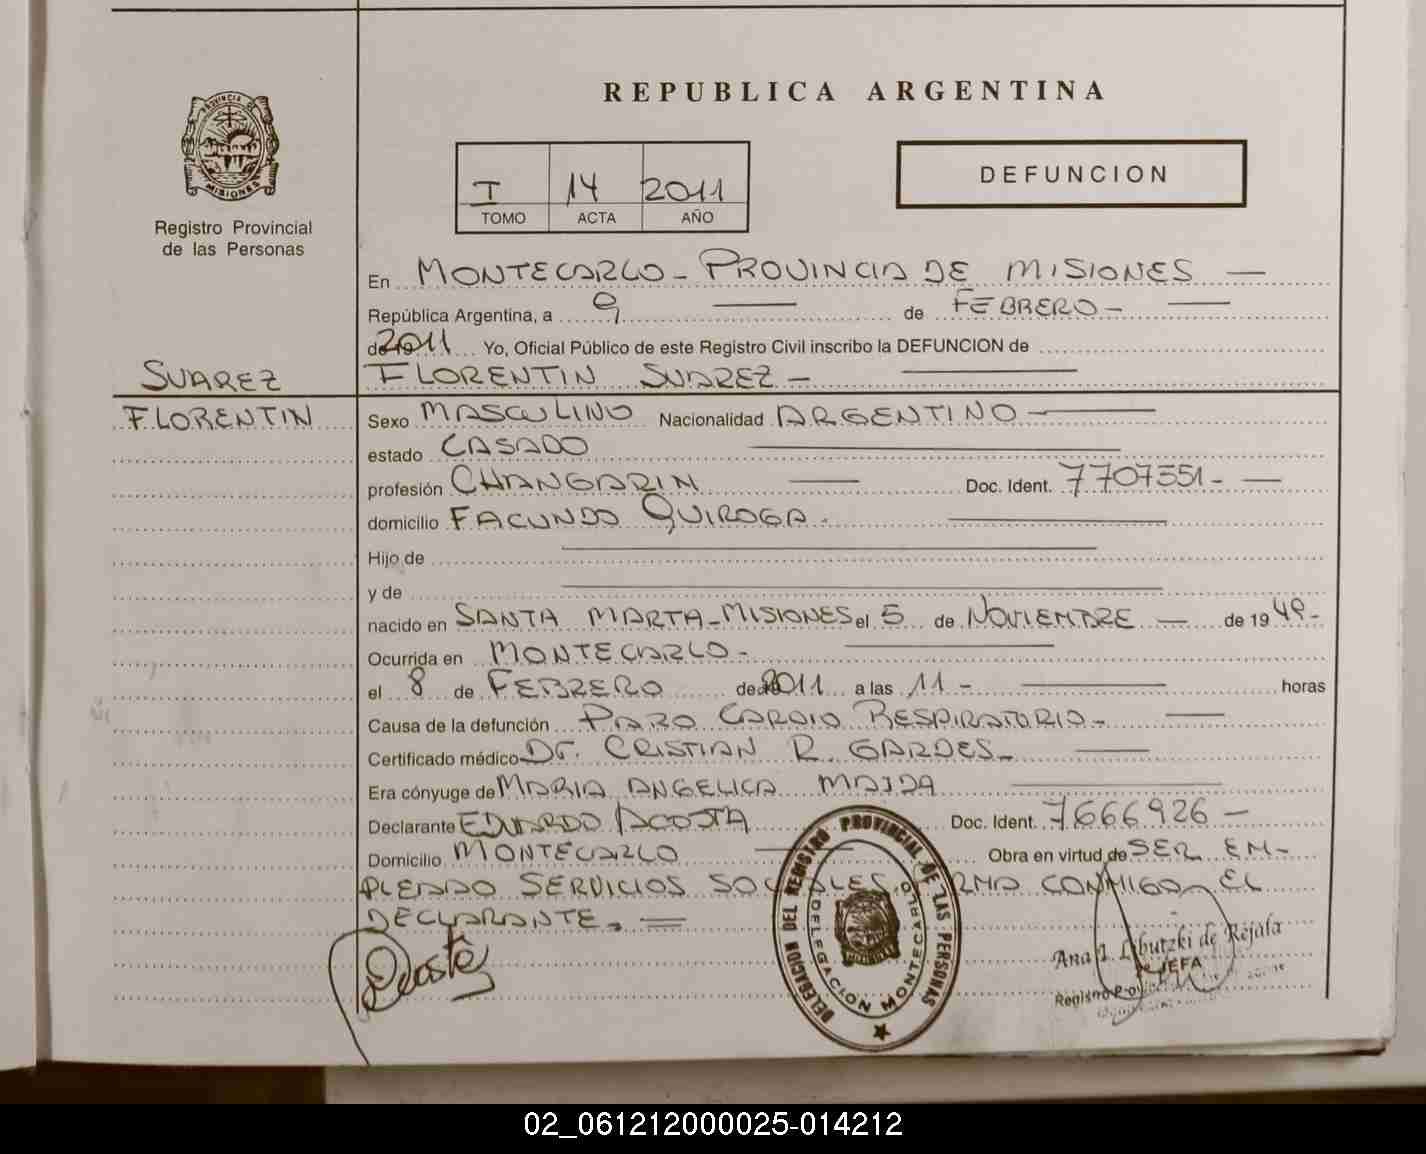 REPUBLICA ARGENTINA
PROVINCIA DE
MISIONES
Registro Provincial
de las Personas
I 14 2011
TOMO ACTA AÑO
DEFUNCION
En MONTECARLO - PROVINCIA DE MISIONES —
República Argentina, a 9 — de FEBRERO - —
de 19 2011 Yo, Oficial Público de este Registro Civil inscribo la DEFUNCION de
FLORENTIN SUAREZ - —
SUAREZ
FLORENTIN
Sexo MASCULINO Nacionalidad ARGENTINO —
estado CASADO —
profesión CHANGARIN — Doc. Ident. 7707551 - —
domicilio FACUNDO QUIROGA . —
Hijo de —
y de —
nacido en SANTA MARTA - MISIONES el 5 de NOVIEMBRE — de 19 49 -
Ocurrida en MONTECARLO - —
el 8 de FEBRERO de 2011 a las 11 - — horas
Causa de la defunción PARO CARDIO RESPIRATORIO - —
Certificado médico Dr. CRISTIAN R. GARDES - —
Era cónyuge de MARIA ANGELICA —
Declarante EDUARDO ACOSTA Doc. Ident. 7666926 -
Domicilio MONTECARLO — Obra en virtud de SER EM-
PLEADO SERVICIOS SOCIALES. FIRMA CONMIGO EL
DECLARANTE. —
EAcosta
DELEGACION DEL REGISTRO PROVINCIAL DE LAS PERSONAS
DELEGACION MONTECARLO
Ana I. Libutzki de Rejala
JEFA
02_061212000025-014212